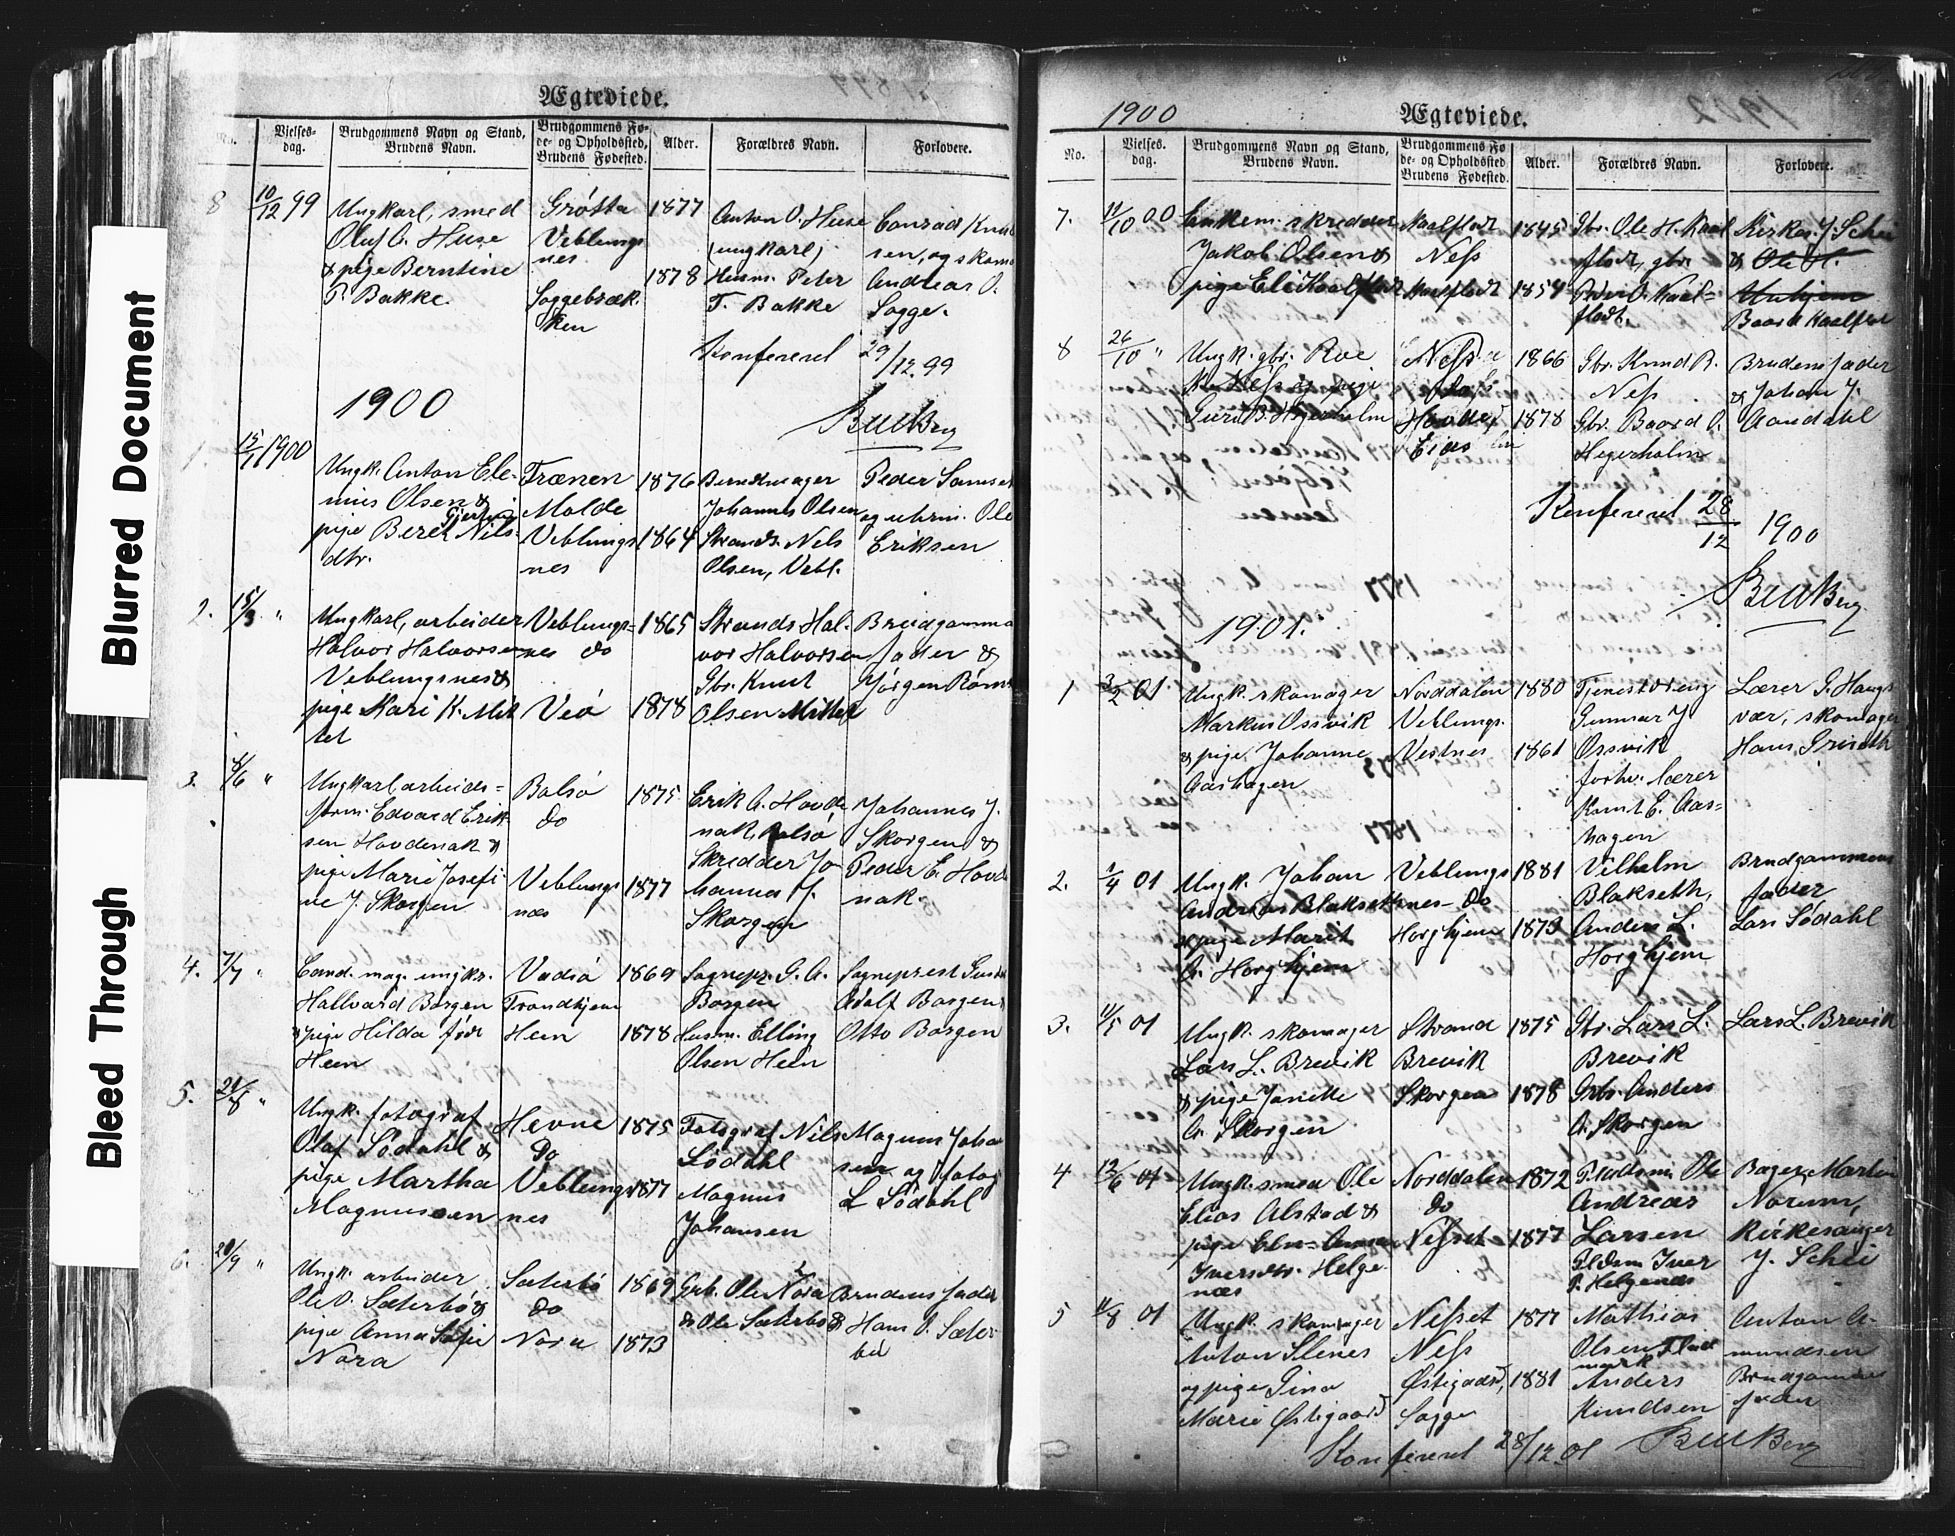 Blurred Document
Bleed Through
Ægteviede.
No.
Vielses-
dag.
Brudgommens Navn og Stand,
Brudens Navn.
Brudgommens Fø-
de- og Opholdssted,
Brudens Fødested.
Alder.
Forældres Navn.
Forlovere.
8
10/12 99
Ungkarl, smed
Oluf A. Huse
& pige Berntine
P. Bakke.
Grøtta
Veblungs
nes
Soggebæk
ken
1877
1878
Anton O. Huse
(ungkarl)
Husm. Peter
T. Bakke
Conrad Knud
sen, og skom
Andreas O.
Sogge.
Konfereret 29/12 99
BuuBerg
1900
1.
15/1 1900
Ungk. Anton Ele-
nius Olsen &
pige Beret Nils
dtr.
Trænen
Molde
Veblungs
nes
1876
1864
Johannes Olsen
Strands. Nels
Olsen, Vebl.
Peder Samset
og uhrm. Ole
Eriksen
2.
15/3 "
Ungkarl, arbeider
Halvor Halvorsen
Veblungsnes &
pige Kari K. Mit
tet
Veblungs-
nes do
Veø
1865
1878
Strands Hal-
vor Halvorsen
Gbr. Knut
Olsen Mittet
Brudgommens
fader &
Jørgen Røms
3.
8/6 "
Ungkarl arbeids-
form. Edvard Erik
sen Hovdenak &
pige Marie Josefi
ne J. Skorgen
Bolsø
do
Veblungs
nes
1875
1877
Erik A. Hovde
nak, Bolsø
Skredder Jo
hannes J.
Skorgen
Johannes J.
Skorgen &
Peder E. Hovde
nak.
4.
7/7 "
Cand. mag. ungkr.
Hallvard Borgen
& pige Hilda født
Heen
Vadsø
Trondhjem
Heen
1869
1878
Sognepr. G. A.
Borgen
Husm. Elling
Olsen Heen
Sogneprest Gust
Adolf Borgen
Otto Borgen
5.
21/8 "
Ungk. fotograf
Olaf Sødahl &
pige Martha
Magnussen
Hevne
Do
Veblungs
nes
1875
1877
Fotograf Nils
Sødahl
Magnus
Johansen
Magnus Johan
sen og fotog
L Sødahl
6.
20/9 "
Ungk. arbeider
Ole O. Sæterbø &
pige Anna Sofie
Nora
Sæterbø
do
Nora
1869
1873
Grb. Ole Nora
& Ole Sæterbø
Brudens fader
& Hans O. Sæter
bø
1900
Ægteviede.
No.
Vielses-
dag.
Brudgommens Navn og Stand,
Brudens Navn.
Brudgommens Fø
de- og Opholdssted
Brudens Fødested.
Alder.
Forældres Navn.
Forlovere.
7.
11/10 00
Enkem. skredder
Jakob Olsen &
pige Eli Kaalflot
Kaalflot
Ness
Kaalflot
1845
1854
Gbr. Ole H. Kaal
flot, gbr.
Peder O. Kaal-
flot.
Kirkes. J. Schei
& Ole H.
Unhjem
Baard Kaalflot
8
26/10 "
Ungk. gbr. Roe
K. Ness og pige
Guru B. Hegerholm
Ness
1866
1878
Gbr. Knud R.
Ness
Gbr. Baard O.
Hegerholm
Brudens fader
& Johan J.
Aandahl
Konfereret 28/12 1900
BuuBerg
1901.
1
3/2 01
Ungk. skomager
Markus Ossvik
& pige Johanne
Aashagen
Norddalen
Veblungs.
Vestnes
1880
1861
Tjenestdreng
Gunnar J
Ossvik
forhv. lærer
Knut E. Aas-
hagen
Lærer P. Haugs
vær, skomager
Hans Griseth
2.
1/4 01
Ungk. Johan
Andreas Blakseth
& pige Marit
A. Horghjem
Veblungs
nes- do
Horghjem
1881
1873
Vilhelm
Blakseth,
Anders L.
Horghjem
Brudgommens
fader
Lars Sødahl
3.
11/5 01
Ungk. skomager
Lars L. Brevik
& pige Janette
A. Skorgen
Strand
Brevik
Skorgen
1875
1878
Gbr. Lars L.
Brevik
Grbr. Anders
A. Skorgen
Lars L. Brevik
4
12/6 01
Ungk. smed Ole
Elias Alstad &
pige Eln- Anna
Iversdtr. Helge
næs
Norddalen
do
Nesset
1872
1877
Pladsm Ole
Andreas
Larsen
Pldsm Iver
P. Helgenæs
Bager Martin
Norum,
Kirkesanger
J. Schei
5
11/8 01
Ungk. skomager
Anton Slenes
og pige Gina
Marie Østigaard
Nesset
Ness
Østigaard,
Sogge
1877
1881
Mathias
Olsen Flad
mark
Anders
Knudsen
Anton A-
mundsen
Brudgommens
fader
Konfereret 28/12 01 BuuBerg